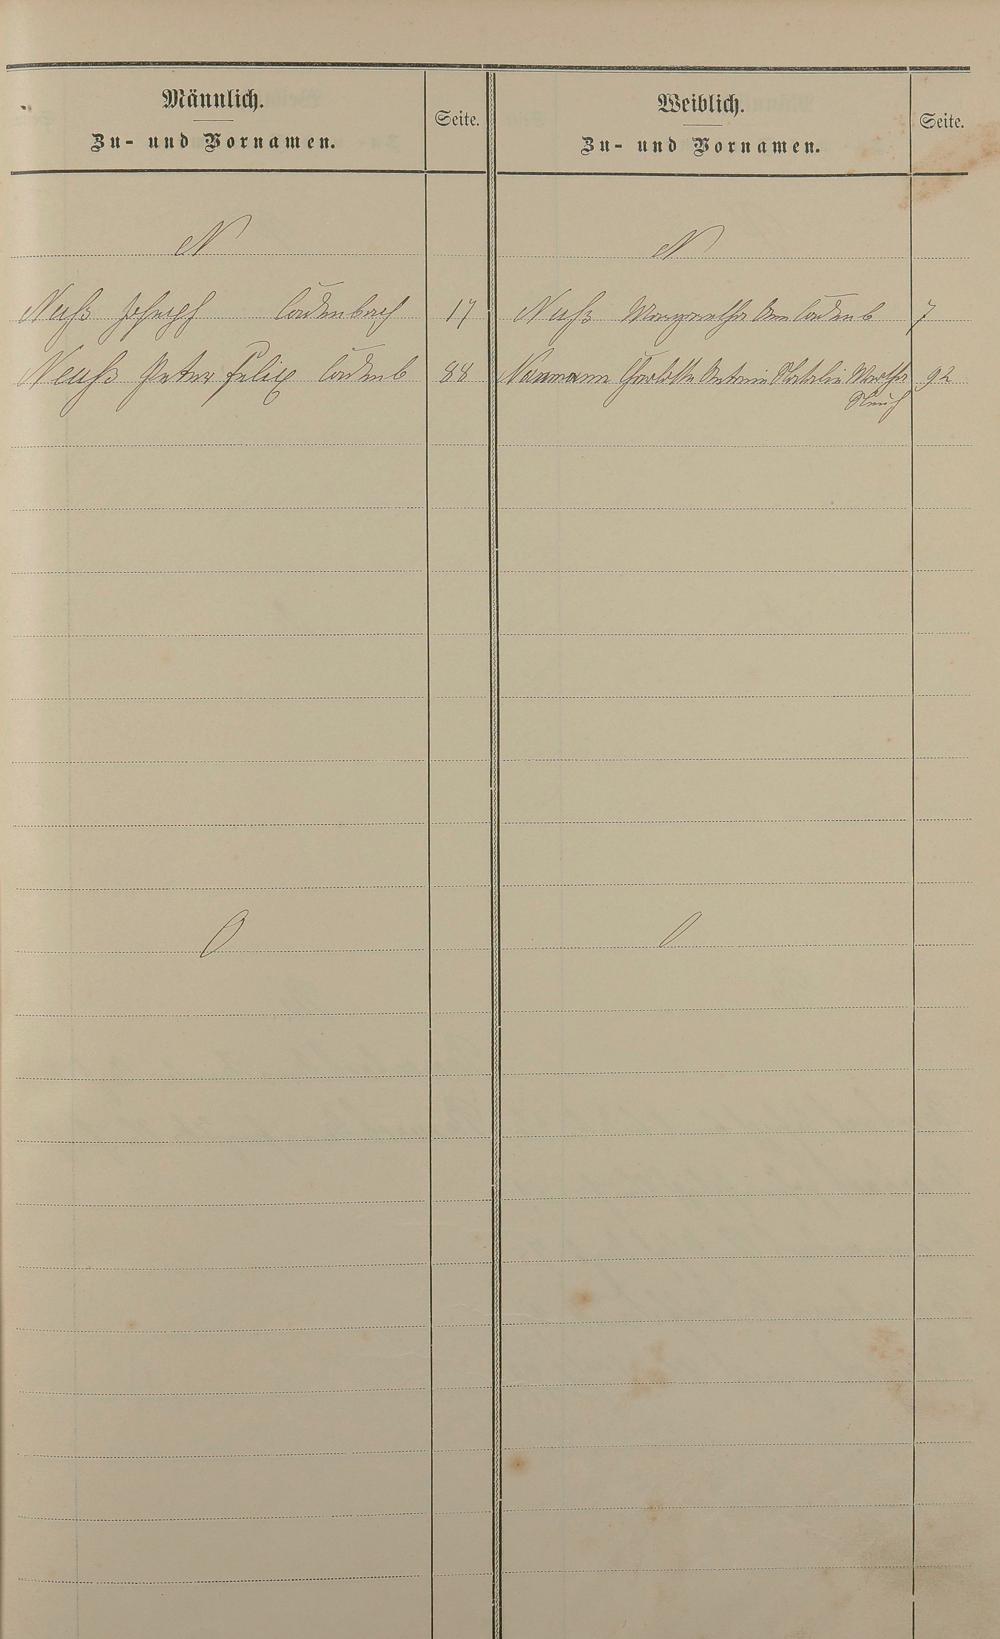 Männlich.
Zu- und Vornamen.
Seite.
Weiblich.
Zu- und Vornamen.
Seite.
N
N
Neuß Joseph Ladenbach 17
Neuß Margaretha Ladenb 7
Neuß Peter Felix Ladenb 88
Naumann Charlotte Antonie Natalie Martha 92
O
O